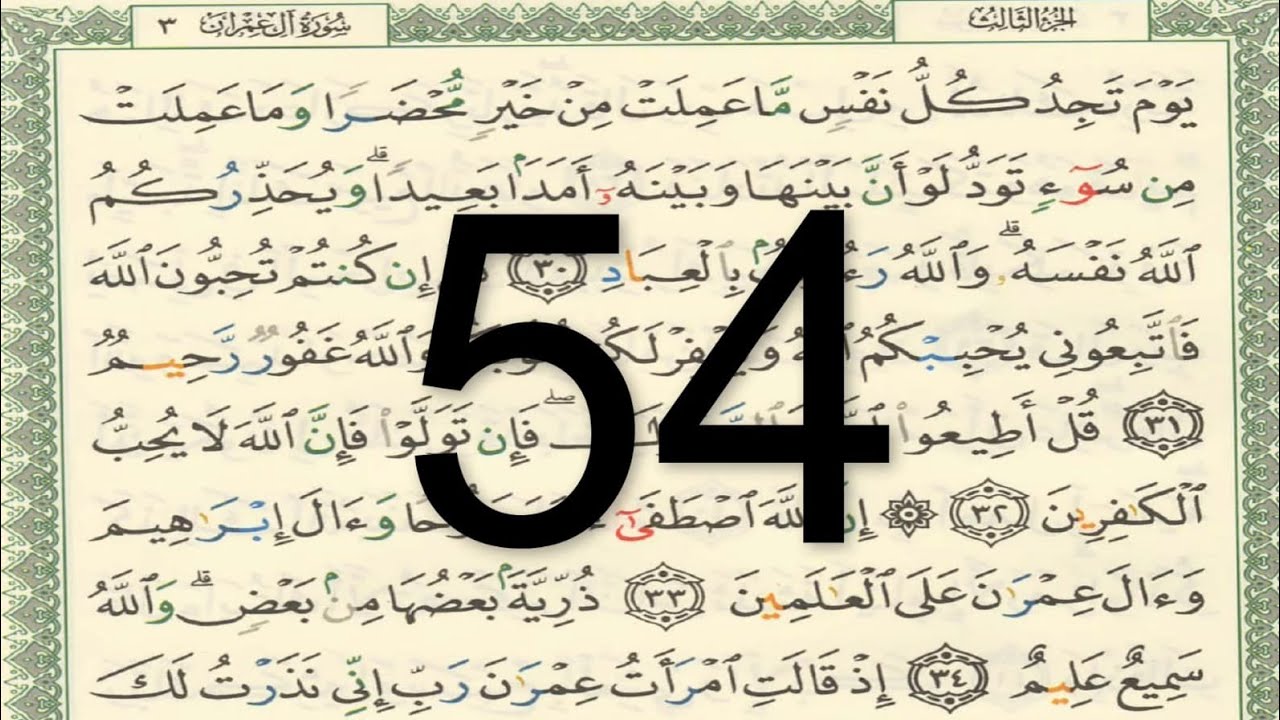 الجُزْءُ الثَّالِثُ
سُورَةُ آلِ عِمْرَانَ ٣
يَوْمَ تَجِدُ كُلُّ نَفْسٍ مَّا عَمِلَتْ مِنْ خَيْرٍ مُّحْضَرًا وَمَا عَمِلَتْ
مِن سُوٓءٍ تَوَدُّ لَوْ أَنَّ بَيْنَهَا وَبَيْنَهُۥٓ أَمَدَۢا بَعِيدًاۗ وَيُحَذِّرُكُمُ
ٱللَّهُ نَفْسَهُۥۗ وَٱللَّهُ بِٱلْعِبَادِ ٣٠ إِن كُنتُمْ تُحِبُّونَ ٱللَّهَ
فَٱتَّبِعُونِي يُحْبِبْكُمُ وَٱللَّهُ غَفُورٌ رَّحِيمٌ
٣١ قُلْ أَطِيعُوا۟ فَإِن تَوَلَّوْا۟ فَإِنَّ ٱللَّهَ لَا يُحِبُّ
ٱلْكَٰفِرِينَ ٣٢ ۞ إِنَّ ٱللَّهَ ٱصْطَفَىٰٓ وَءَالَ إِبْرَٰهِيمَ
وَءَالَ عِمْرَٰنَ عَلَى ٱلْعَٰلَمِينَ ٣٣ ذُرِّيَّةَۢ بَعْضُهَا مِنۢ بَعْضٍۗ وَٱللَّهُ
سَمِيعٌ عَلِيمٌ ٣٤ إِذْ قَالَتِ ٱمْرَأَتُ عِمْرَٰنَ رَبِّ إِنِّي نَذَرْتُ لَكَ
54